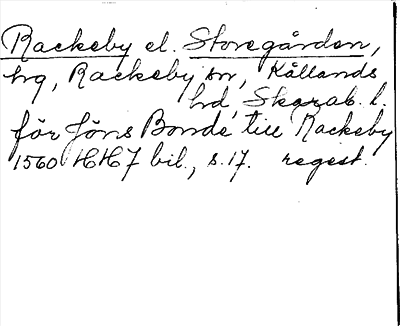 Rackeby el. Storegården,
hg, Rackeby sn, Kållands
hd, Skarab. l.
för Jöns Bonde till Rackeby
1560 HH 7 bil., s. 17. regest.